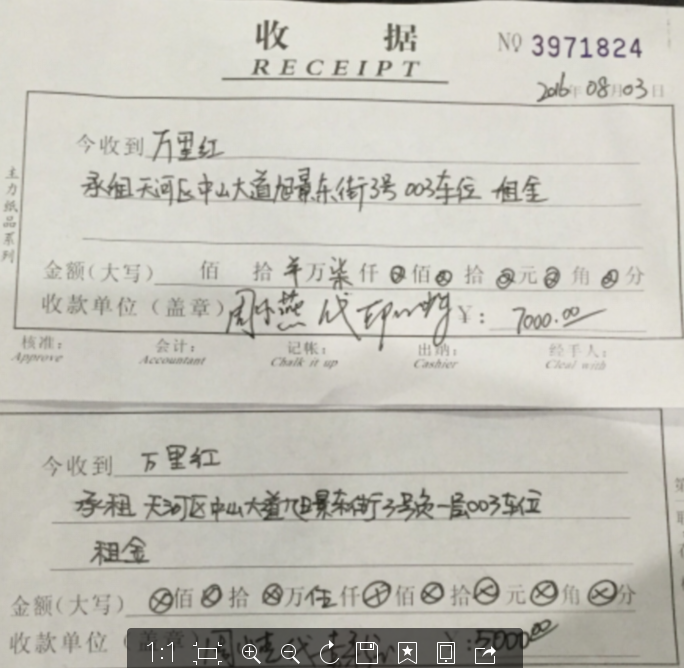 收 据
RECEIPT
№ 3971824
2016年08月03日
主力纸品系列
今收到 万里红
承租天河区中山大道旭景东街3号003车位 租金
金额(大写) 佰 拾 万柒仟⊗佰⊗拾⊗元⊗角⊗分
收款单位(盖章) 周小燕代 ¥: 7000.00
核准: 会计: 记帐: 出纳: 经手人:
Approve Accountant Chalk it up Cashier Cleal with
今收到 万里红
承租天河区中山大道旭景东街3号负一层003车位
租金
金额(大写) ⊗佰⊗拾⊗万伍仟⊗佰⊗拾⊗元⊗角⊗分
收款单位(盖章) ¥:5000.00
1:1